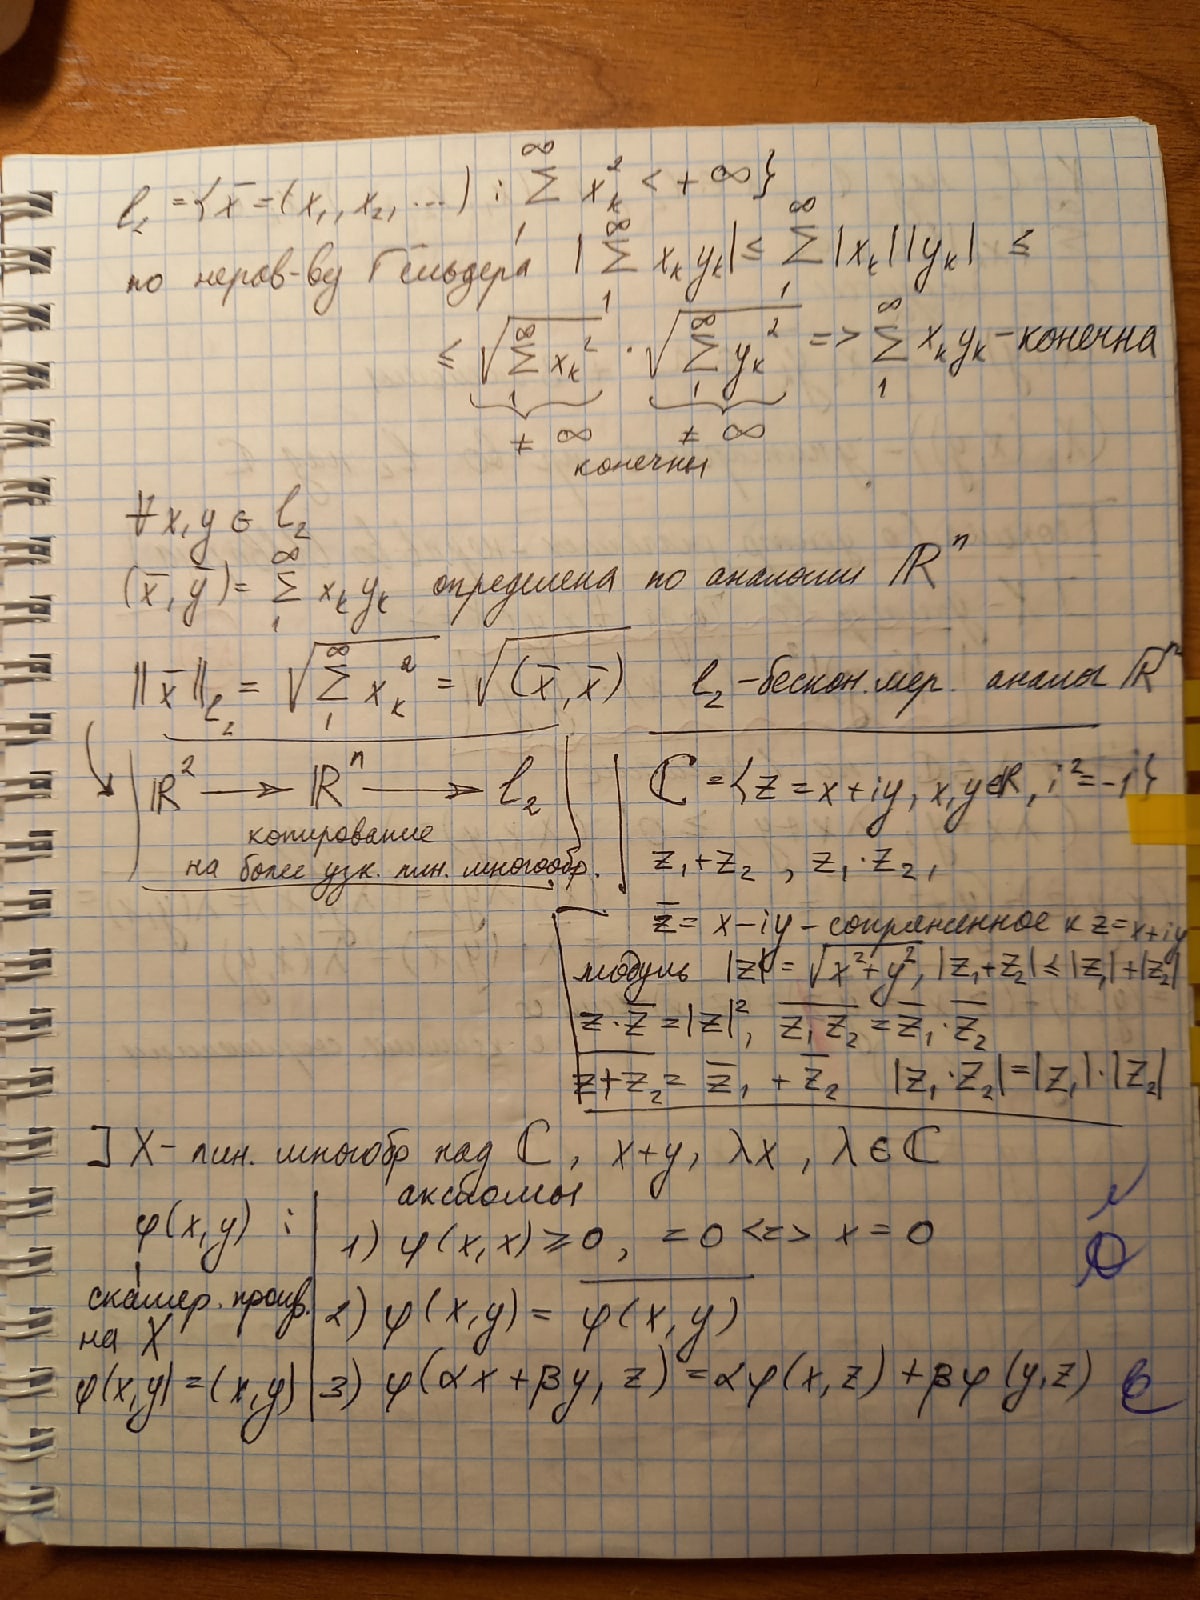 l₂ = {x̄ = (x₁, x₂, ...) : ∑₁^∞ xₖ² < +∞}
по нерав-ву Гёльдера |∑₁^∞ xₖyₖ| ≤ ∑₁^∞ |xₖ||yₖ| ≤
≤ √(∑₁^∞ xₖ²) · √(∑₁^∞ yₖ²) => ∑₁^∞ xₖyₖ - конечна
≠ ∞ ≠ ∞
конечны
∀ x, y ∈ l₂
(x̄, ȳ) = ∑₁^∞ xₖyₖ определена по аналогии ℝⁿ
||x̄||_l₂ = √(∑₁^∞ xₖ²) = √(x̄, x̄) l₂ - бескон. мер. аналог ℝⁿ
ℝ² → ℝⁿ → l₂
копирование
на более узк. лин. многообр.
ℂ = {z = x + iy, x, y ∈ ℝ, i² = -1}
z₁ + z₂, z₁ · z₂,
z̄ = x - iy - сопряженное к z = x + iy
модуль |z| = √(x² + y²), |z₁ + z₂| ≤ |z₁| + |z₂|
z · z̄ = |z|², \overline{z₁ z₂} = z̄₁ · z̄₂
\overline{z + z₂} = z̄₁ + z̄₂ |z₁ · z₂| = |z₁| · |z₂|
] X - лин. многообр над ℂ, x + y, λx, λ ∈ ℂ
аксиомы
φ(x, y) :
скаляр. произв.
на X
φ(x, y) = (x, y)
1) φ(x, x) ≥ 0, = 0 <=> x = 0
2) φ(x, y) = \overline{φ(x, y)}
3) φ(αx + βy, z) = αφ(x, z) + βφ(y, z)